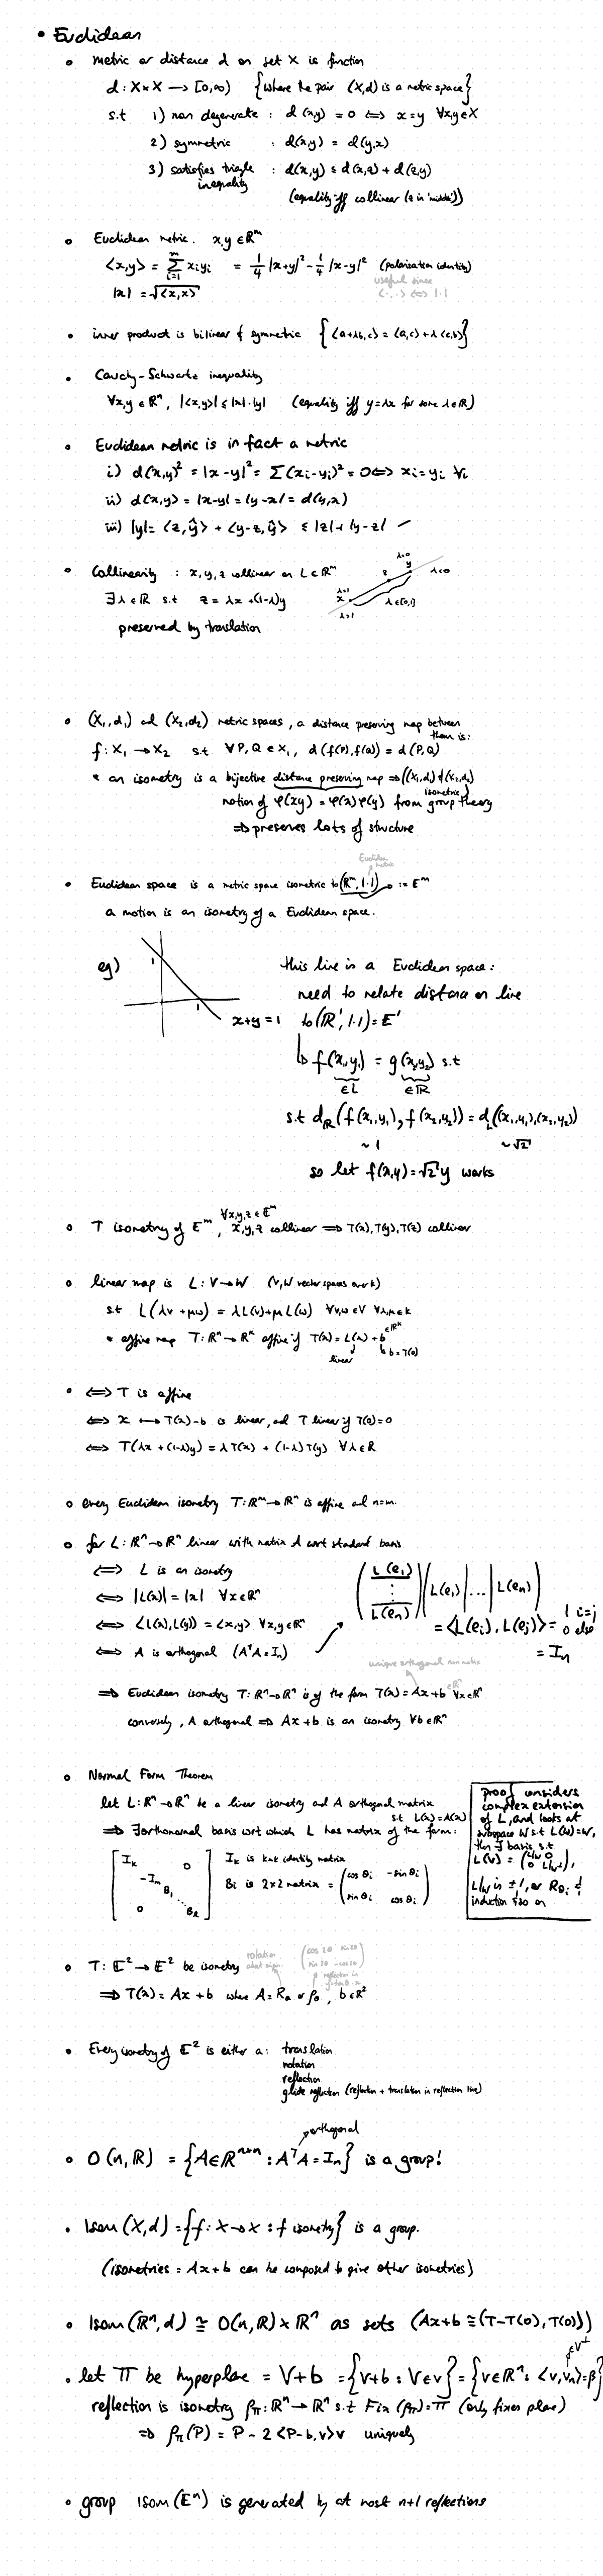 • Euclidean
• metric or distance d on set X is function
d : X×X → [0,∞) {where the pair (X,d) is a metric space}
s.t 1) non degenerate : d(x,y) = 0 ⟺ x=y ∀x,y∈X
2) symmetric : d(x,y) = d(y,x)
3) satisfies triangle inequality : d(x,y) ≤ d(x,z) + d(z,y)
(equality iff collinear (z in 'middle'))
• Euclidean metric. x,y ∈ℝᵐ
⟨x,y⟩ = Σᵢ₌₁ᵐ xᵢyᵢ = ¼|x+y|² - ¼|x-y|² (polarization identity)
useful since
|x| = √⟨x,x⟩ ⟨·,·⟩ ⟺ |·|
• inner product is bilinear & symmetric {⟨a+λb,c⟩ = ⟨a,c⟩+λ⟨c,b⟩}
• Cauchy-Schwartz inequality
∀x,y ∈ℝⁿ, |⟨x,y⟩| ≤ |x|·|y| (equality iff y=λx for some λ∈ℝ)
• Euclidean metric is in fact a metric
i) d(x,y)² = |x-y|² = Σ(xᵢ-yᵢ)² = 0 ⟺ xᵢ=yᵢ ∀i
ii) d(x,y) = |x-y| = |y-x| = d(y,x)
iii) |y| = ⟨z,ŷ⟩ + ⟨y-z,ŷ⟩ ≤ |z|+|y-z|
• Collinearity : x,y,z collinear on L⊂ℝᵐ
∃λ∈ℝ s.t z = λx+(1-λ)y
preserved by translation
λ=0
y
λ<0
z
λ=1
x
λ∈[0,1]
λ>1
• (X₁,d₁) and (X₂,d₂) metric spaces, a distance preserving map between them is:
f : X₁ → X₂ s.t ∀P,Q ∈X₁, d(f(P),f(Q)) = d(P,Q)
* an isometry is a bijective distance preserving map ⇒ ((X₁,d₁) & (X₂,d₂) isometric)
notion of φ(xy) = φ(x)φ(y) from group theory
⇒ preserves lots of structure
Euclidean metric
• Euclidean space is a metric space isometric to (ℝᵐ, |·|) := Eᵐ
a motion is an isometry of a Euclidean space.
eg)
1
1
x+y=1
this line is a Euclidean space:
need to relate distance on line
to (ℝ', |·|) = E'
↳ f(x₁,y₁) = g(x₂,y₂) s.t
∈L ∈ℝ
s.t d_ℝ(f(x₁,y₁), f(x₂,y₂)) = d_L((x₁,y₁),(x₂,y₂))
~1 ~√2
so let f(x,y) = √2 y works
• T isometry of Eᵐ, ∀x,y,z∈Eᵐ x,y,z collinear ⇒ T(x),T(y),T(z) collinear
• linear map is L : V→W (V,W vector spaces over k)
s.t L(λv+μw) = λL(v)+μL(w) ∀v,w∈V ∀λ,μ∈k
* affine map T: ℝⁿ→ℝⁿ affine if T(x) = L(x) + b ∈ℝⁿ
linear ↳ b=T(0)
• ⟺ T is affine
⟺ x ↦ T(x)-b is linear, and T linear if T(0)=0
⟺ T(λx+(1-λ)y) = λT(x) + (1-λ)T(y) ∀λ∈ℝ
• every Euclidean isometry T:ℝᵐ→ℝⁿ is affine and n=m.
• for L: ℝⁿ→ℝⁿ linear with matrix A wrt standard basis
⟺ L is an isometry
⟺ |L(x)| = |x| ∀x∈ℝⁿ
⟺ ⟨L(x),L(y)⟩ = ⟨x,y⟩ ∀x,y∈ℝⁿ
⟺ A is orthogonal (AᵀA=Iₙ)
(L(e₁) ⋮ L(eₙ)) (L(e₁) | ... | L(eₙ))
= ⟨L(eᵢ), L(eⱼ)⟩ = 1 i=j 0 else
= Iₙ
unique orthogonal n×n matrix
⇒ Euclidean isometry T: ℝⁿ→ℝⁿ is of the form T(x) = Ax+b ∈ℝⁿ ∀x∈ℝⁿ
conversely, A orthogonal ⇒ Ax+b is an isometry ∀b∈ℝⁿ
• Normal Form Theorem
let L: ℝⁿ→ℝⁿ be a linear isometry and A orthogonal matrix s.t L(x)=A(x)
⇒ ∃orthonormal basis wrt which L has matrix of the form:
[Iₖ 0 -Iₘ B₁ ⋱ 0 Bₗ]
Iₖ is k×k identity matrix
Bᵢ is 2×2 matrix = (cos θᵢ -sin θᵢ
sin θᵢ cos θᵢ)
proof considers
complex extension
of L, and looks at
subspace W s.t L(W)=W,
then ∃ basis s.t
L(v) = (L|w 0
0 L|w⊥),
L|w is ±1, or Rθᵢ &
induction & so on
• T: E² → E² be isometry
rotation about origin
(cos 2θ sin 2θ
sin 2θ -cos 2θ)
reflection in y=tanθ·x
⇒ T(x) = Ax + b where A = Rθ or ρθ, b∈ℝ²
• Every isometry of E² is either a: translation
rotation
reflection
glide reflection (reflection + translation in reflection line)
orthogonal
• O(n,ℝ) = {A∈ℝⁿˣⁿ : AᵀA = Iₙ} is a group!
• Isom(X,d) = {f: X→X : f isometry} is a group.
(isometries = Ax+b can be composed to give other isometries)
• Isom(ℝⁿ,d) ≅ O(n,ℝ) × ℝⁿ as sets (Ax+b ≅ (T-T(0), T(0)))
∈V⊥
• let Π be hyperplane = V+b = {v+b : v∈V} = {v∈ℝⁿ: ⟨v,vₙ⟩=β}
reflection is isometry ρ_Π: ℝⁿ→ℝⁿ s.t Fix(ρ_Π)=Π (only fixes plane)
⇒ ρ_Π(P) = P - 2⟨P-b,v⟩v uniquely
• group Isom(Eⁿ) is generated by at most n+1 reflections